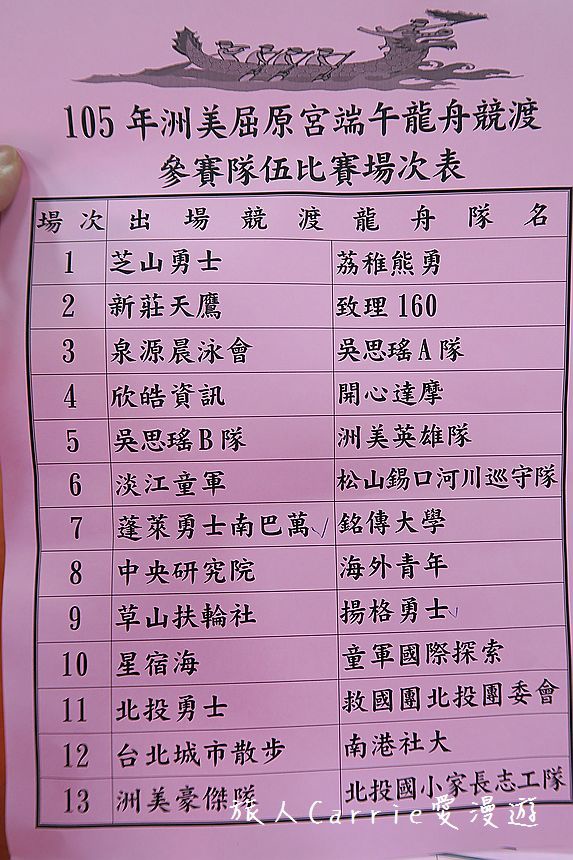 105年洲美屈原宮端午龍舟競渡
參賽隊伍比賽場次表
場次 出場競渡龍舟隊名
1 芝山勇士 荔稚熊勇
2 新莊天鷹 致理160
3 泉源晨泳會 吳思瑤A隊
4 欣皓資訊 開心達摩
5 吳思瑤B隊 洲美英雄隊
6 淡江童軍 松山錫口河川巡守隊
7 蓬萊勇士南巴萬 銘傳大學
8 中央研究院 海外青年
9 草山扶輪社 揚格勇士
10 星宿海 童軍國際探索
11 北投勇士 救國團北投團委會
12 台北城市散步 南港社大
13 洲美豪傑隊 北投國小家長志工隊
旅人Carrie愛漫遊